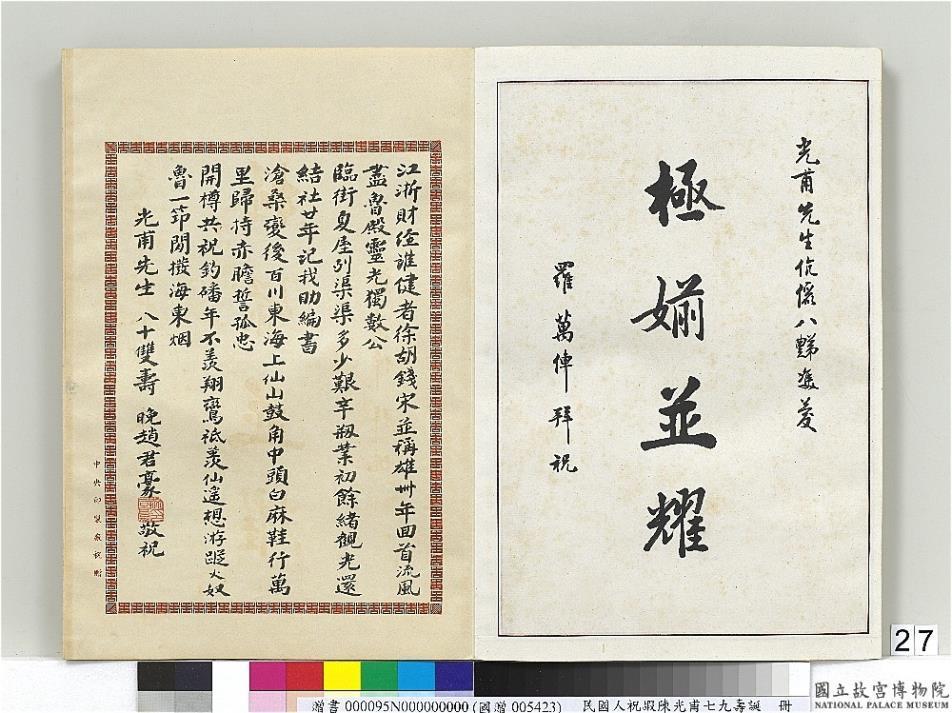 光甫先生伉儷八豑雙慶
極婻並耀
羅萬俥拜祝
江浙財經誰健者徐胡錢宋並稱雄卅年回首流風
盡魯殿靈光獨數公
臨街夏屋列渠渠多少艱辛剏業初餘緒觀光還
結社廿年記我助編書
滄桑變後百川東海上仙山鼓角中頭白麻鞋行萬
里歸持赤膽誓孤忠
開樽共祝釣磻年不羨翔鸞祇羨仙遙想游蹤火奴
魯一笻閒撥海東烟
光甫先生 八十雙壽 晚趙君豪 敬祝
中央印製廠敬贈
27
贈書 000095N000000000 (國贈 005423) 民國人祝嘏陳光甫七九壽誕 冊
國立故宮博物院
NATIONAL PALACE MUSEUM